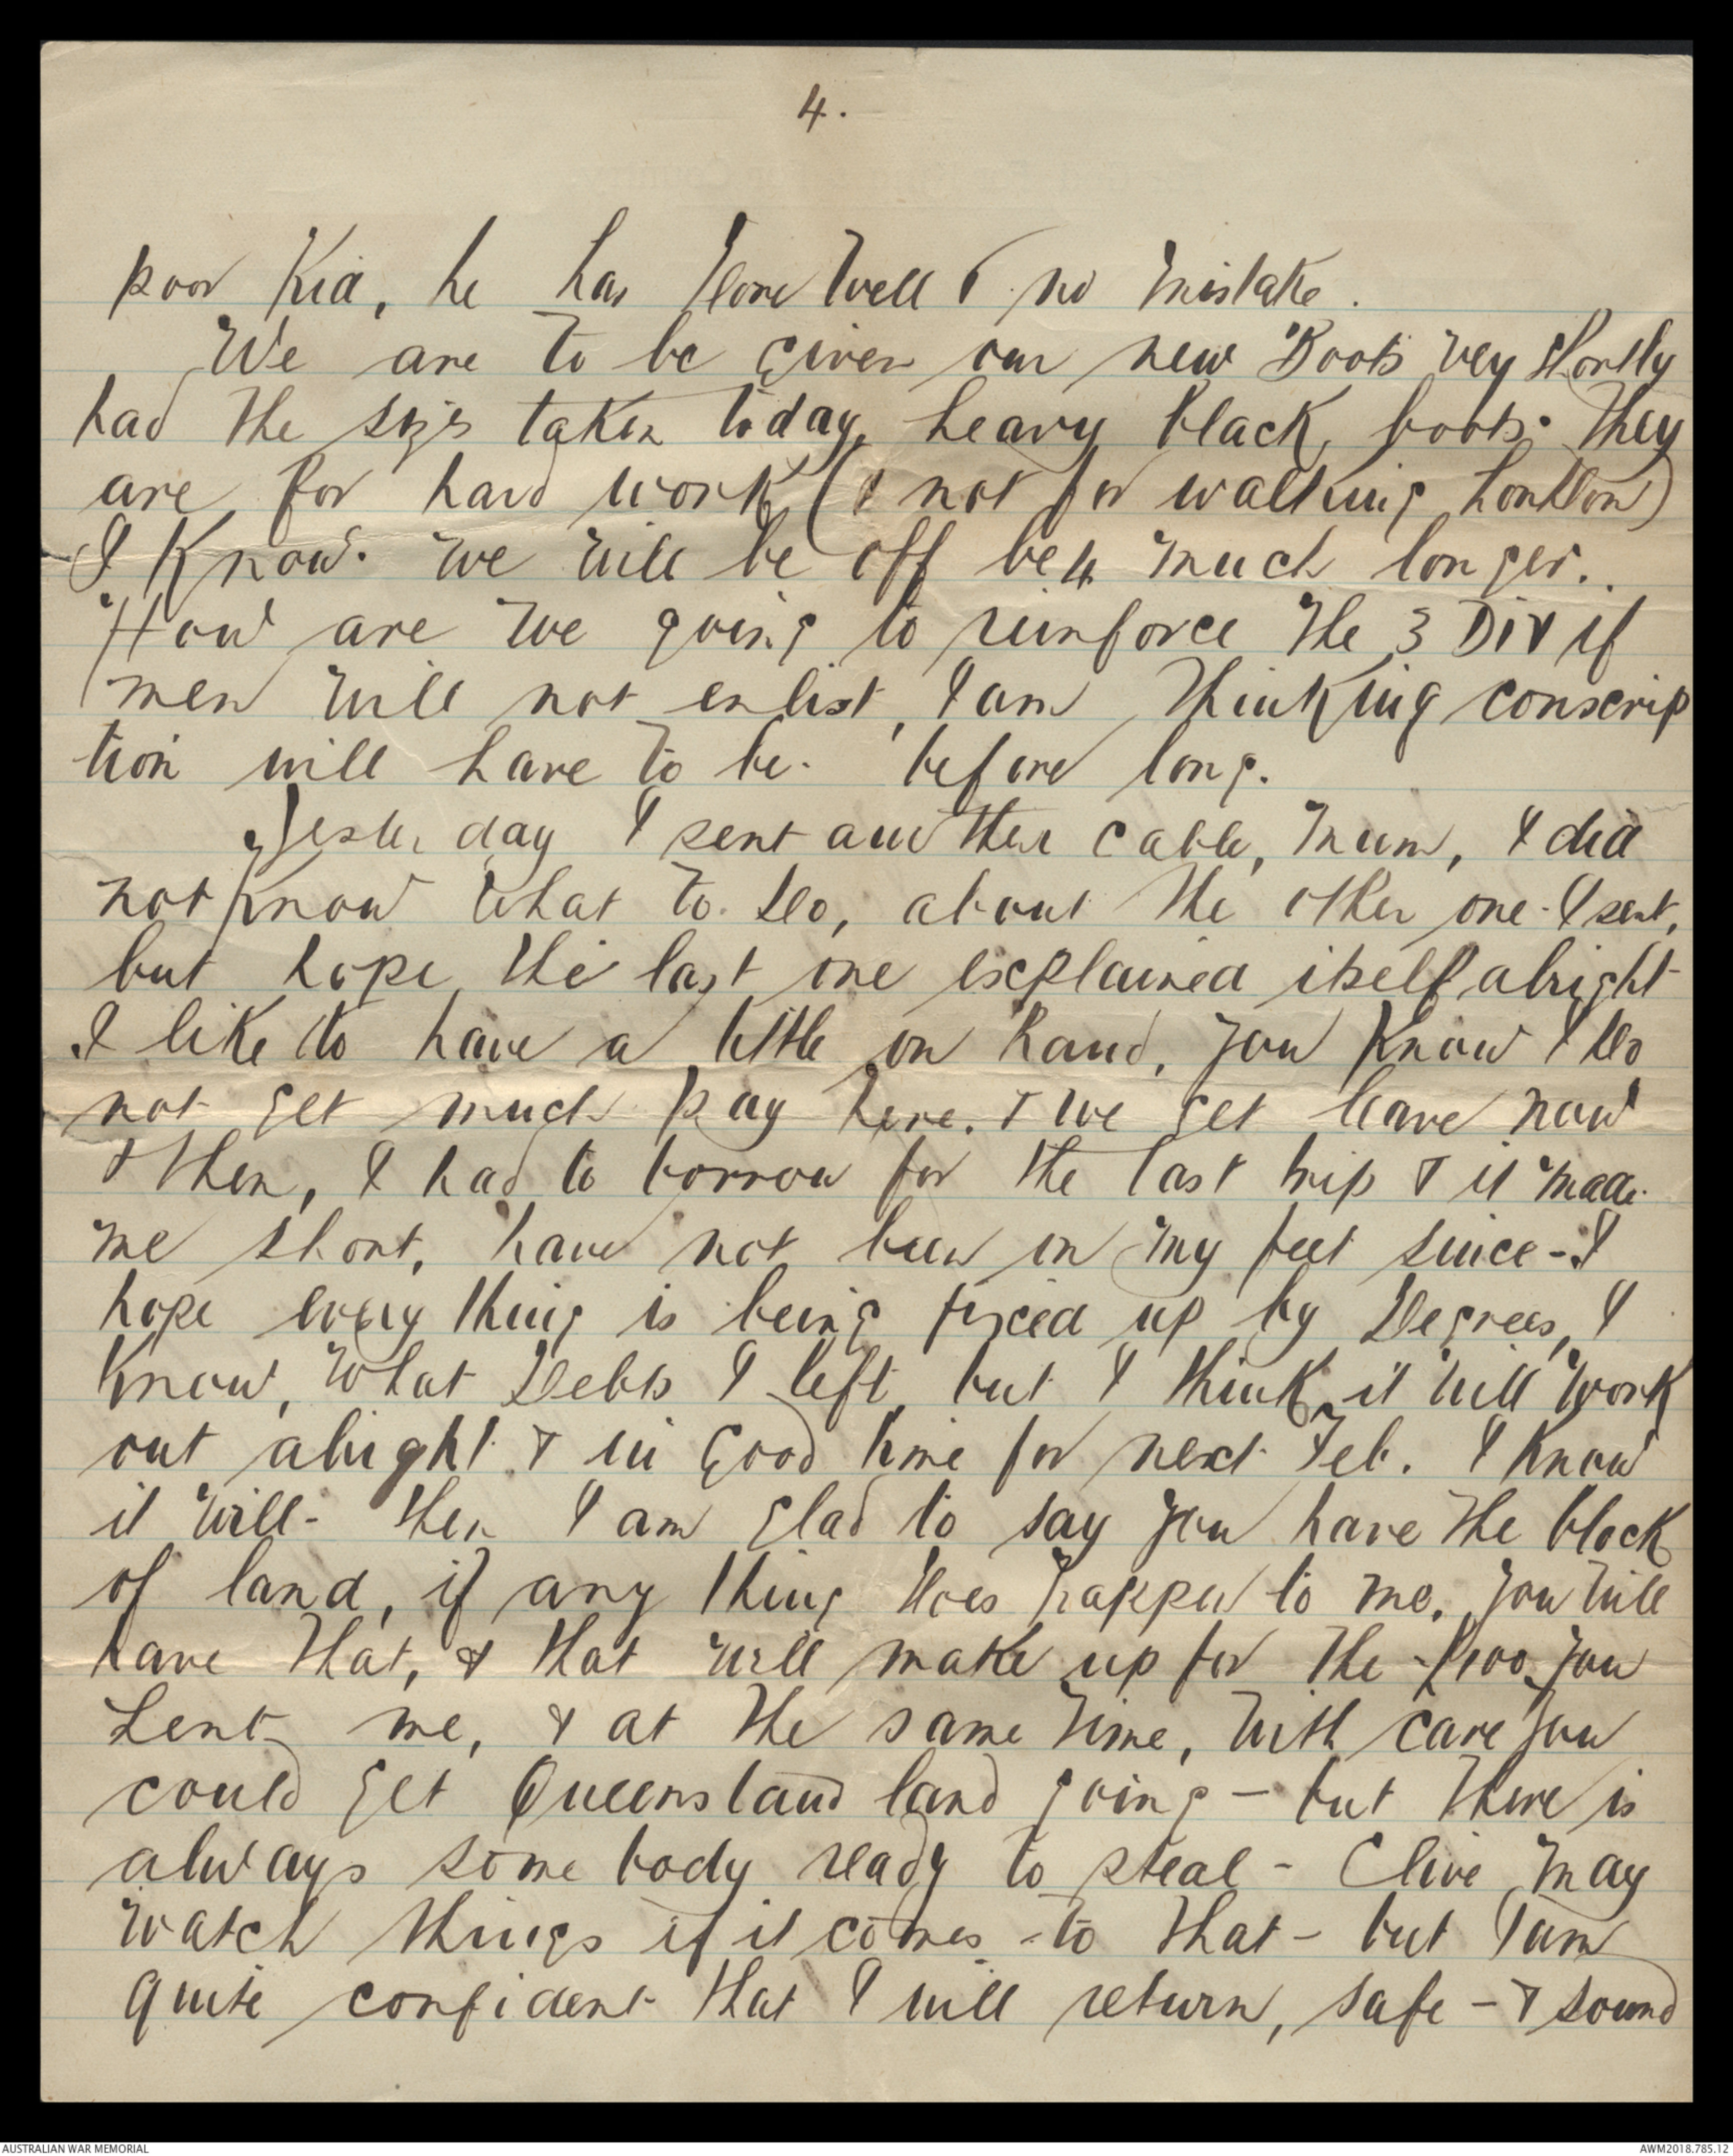 4.
poor Kid, he has done well & no mistake.
We are to be given our new Boots very shortly
had the sizes taken today, heavy black, boots. They
are for hard work (& not for walking London)
I know. We will be off much longer.
How are we going to reinforce the 3 Div if
men will not enlist, I am thinking conscrip
tion will have to be. before long.
Yesterday I sent another cable, Mum, I did
not know what to do, about the other one I sent,
but hope the last one explained itself alright
I like to have a little on hand, you know I do
not get much pay here. & we get leave now
& then, I had to borrow for the last trip & it made
me short, have not been on my feet since - I
hope every thing is being fixed up by Degrees, I
know, what Debts I left, but I think it will work
out alright & in good time for next Feb. I know
it will - then I am glad to say you have the block
of land, if any thing does happen to me. you will
have that, & that will make up for the £100 you
Lent me, & at the same time, with care you
could get Queensland land going - but there is
always some body ready to steal - Clive may
watch things if it comes to that - but I am
quite confident that I will return, safe - & sound
AUSTRALIAN WAR MEMORIAL
AWM2018.785.12